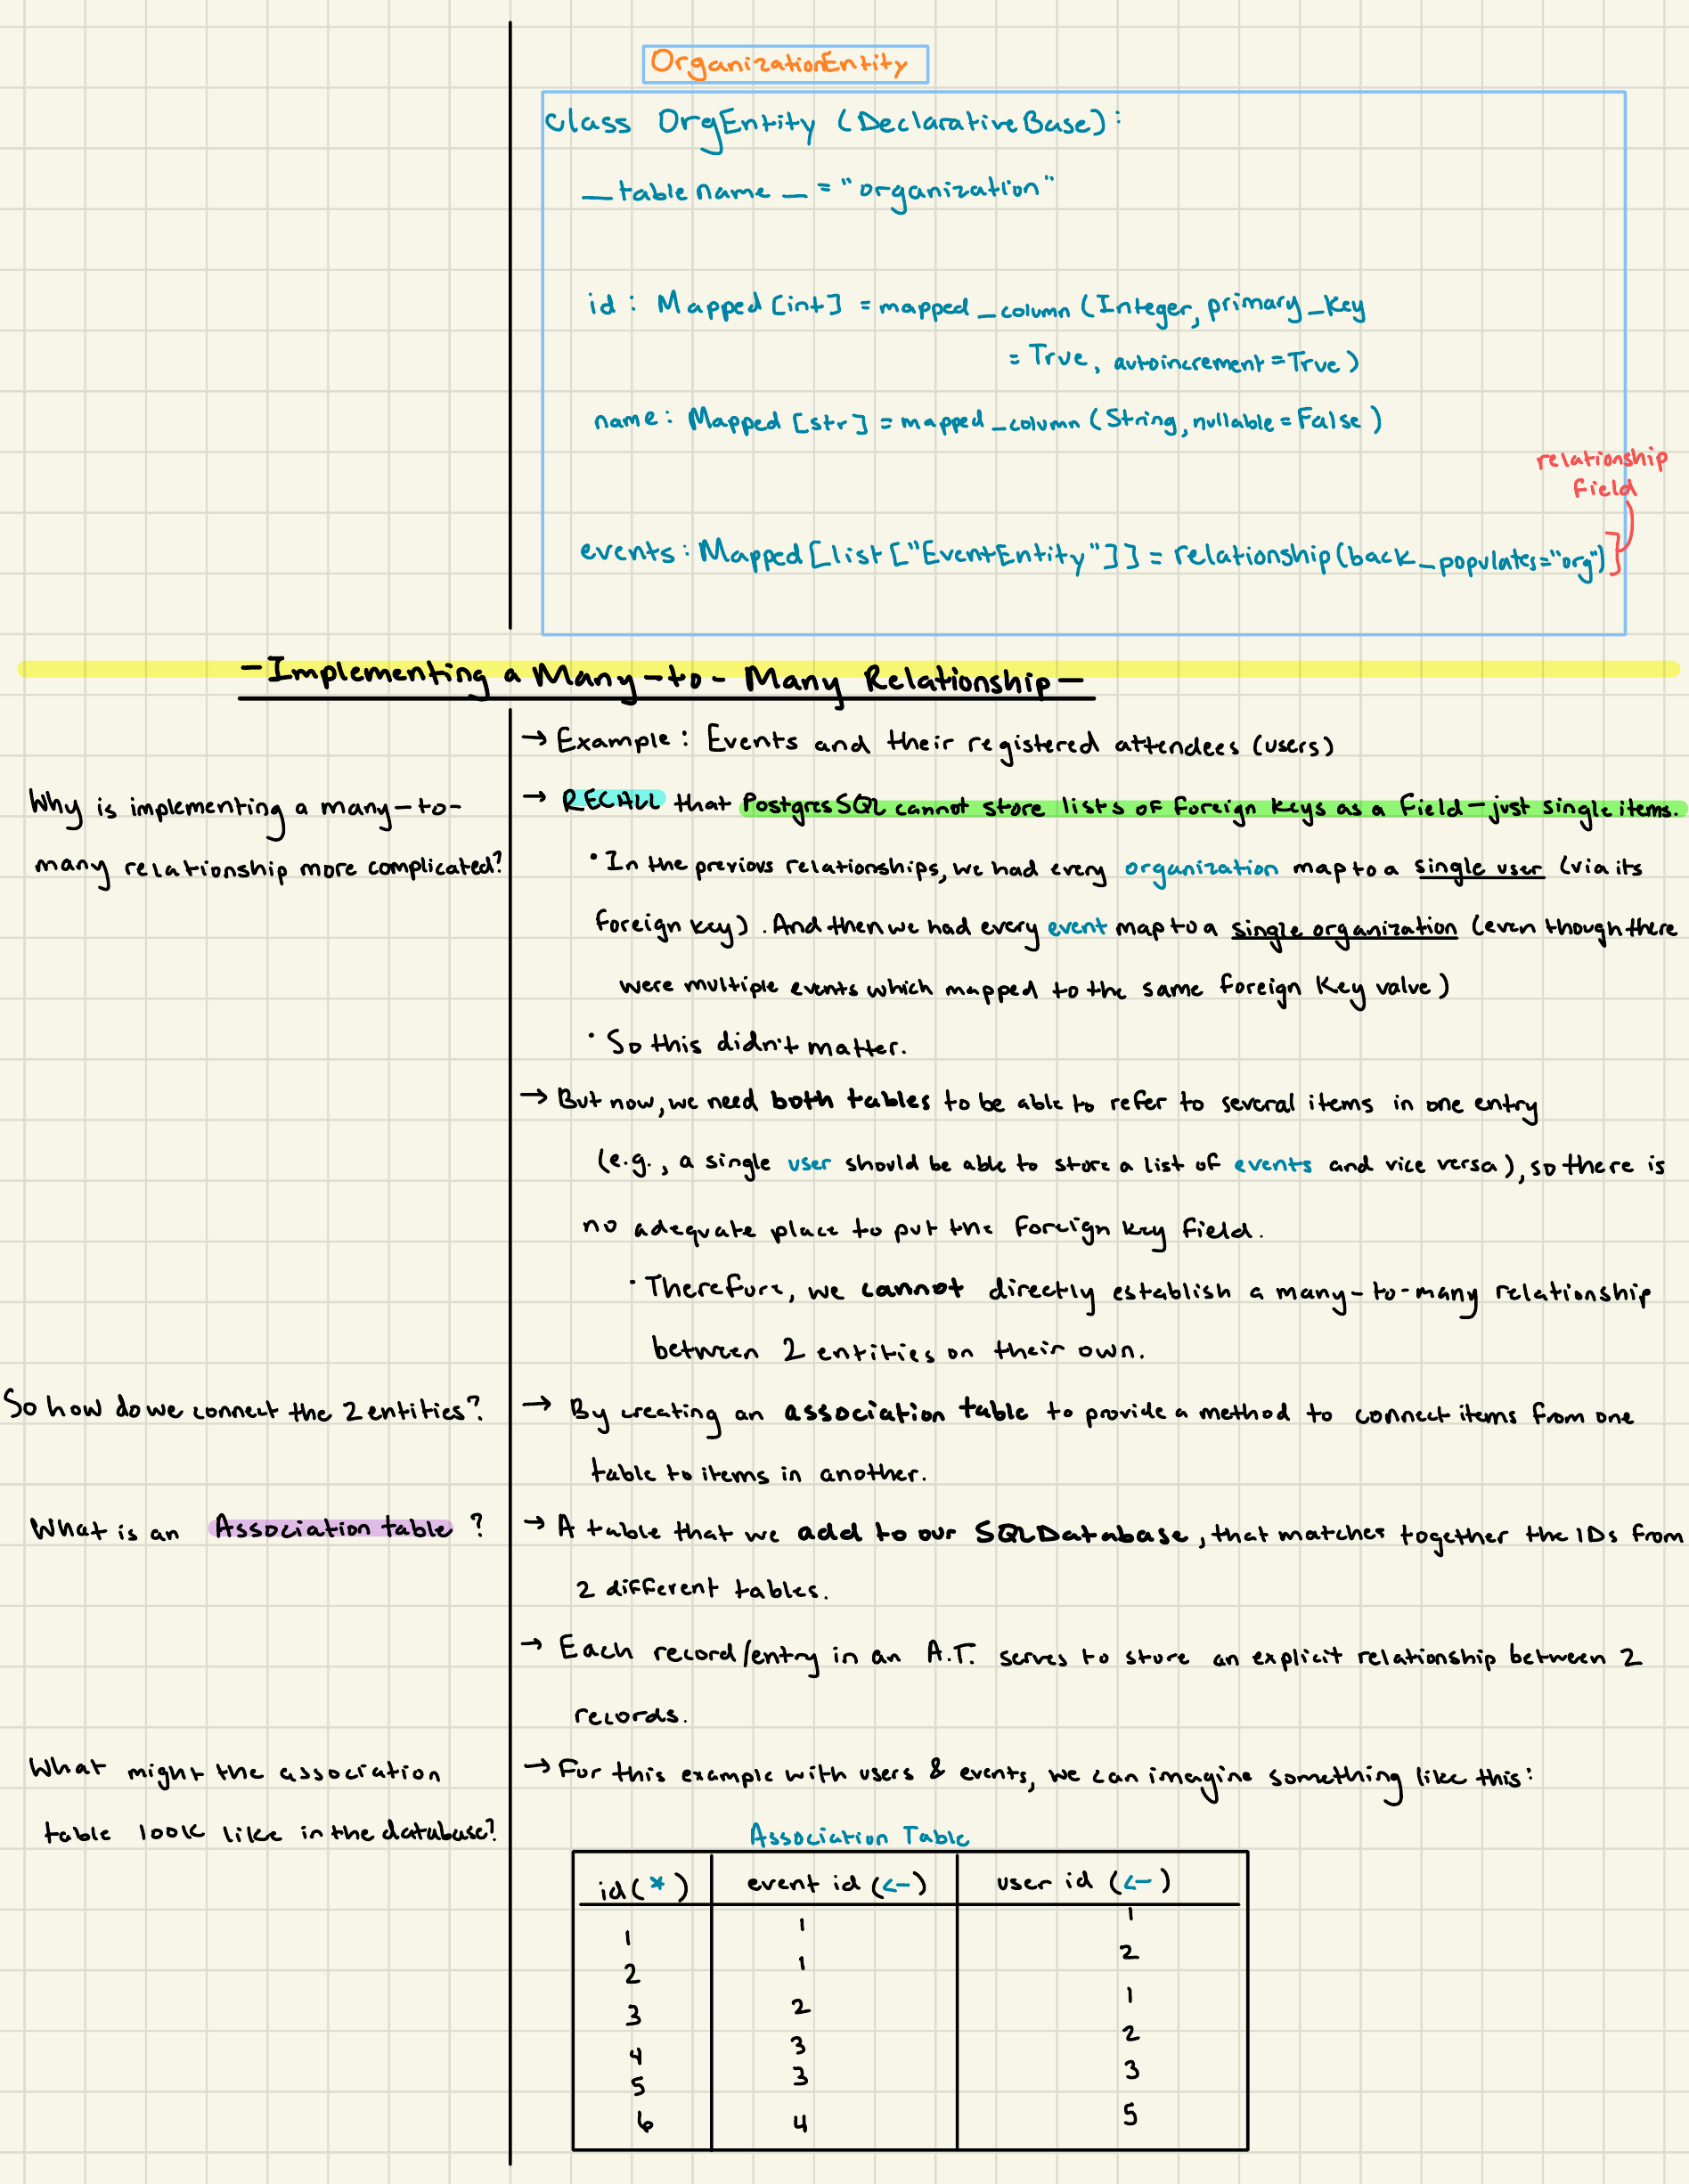 OrganizationEntity
class OrgEntity (DeclarativeBase):
__tablename__ = "organization"
id : Mapped [int] = mapped_column (Integer, primary_key
= True, autoincrement = True)
name : Mapped [str] = mapped_column (String, nullable = False)
relationship
field
events : Mapped [list ["EventEntity"]] = relationship (back_populates="org")
- Implementing a Many-to-Many Relationship -
→ Example: Events and their registered attendees (users)
Why is implementing a many-to-
many relationship more complicated?
→ RECALL that PostgresSQL cannot store lists of foreign keys as a field - just single items.
• In the previous relationships, we had every organization map to a single user (via its
foreign key). And then we had every event map to a single organization (even though there
were multiple events which mapped to the same foreign key value)
• So this didn't matter.
→ But now, we need both tables to be able to refer to several items in one entry
(e.g., a single user should be able to store a list of events and vice versa), so there is
no adequate place to put the foreign key field.
• Therefore, we cannot directly establish a many-to-many relationship
between 2 entities on their own.
So how do we connect the 2 entities?
→ By creating an association table to provide a method to connect items from one
table to items in another.
What is an Association table ?
→ A table that we add to our SQL Database, that matches together the IDs from
2 different tables.
→ Each record/entry in an A.T. serves to store an explicit relationship between 2
records.
What might the association
table look like in the database?
→ For this example with users & events, we can imagine something like this:
Association Table
id (*) event id (<-) user id (<-)
1 1 1
2 1 2
3 2 1
4 3 2
5 3 3
6 4 5